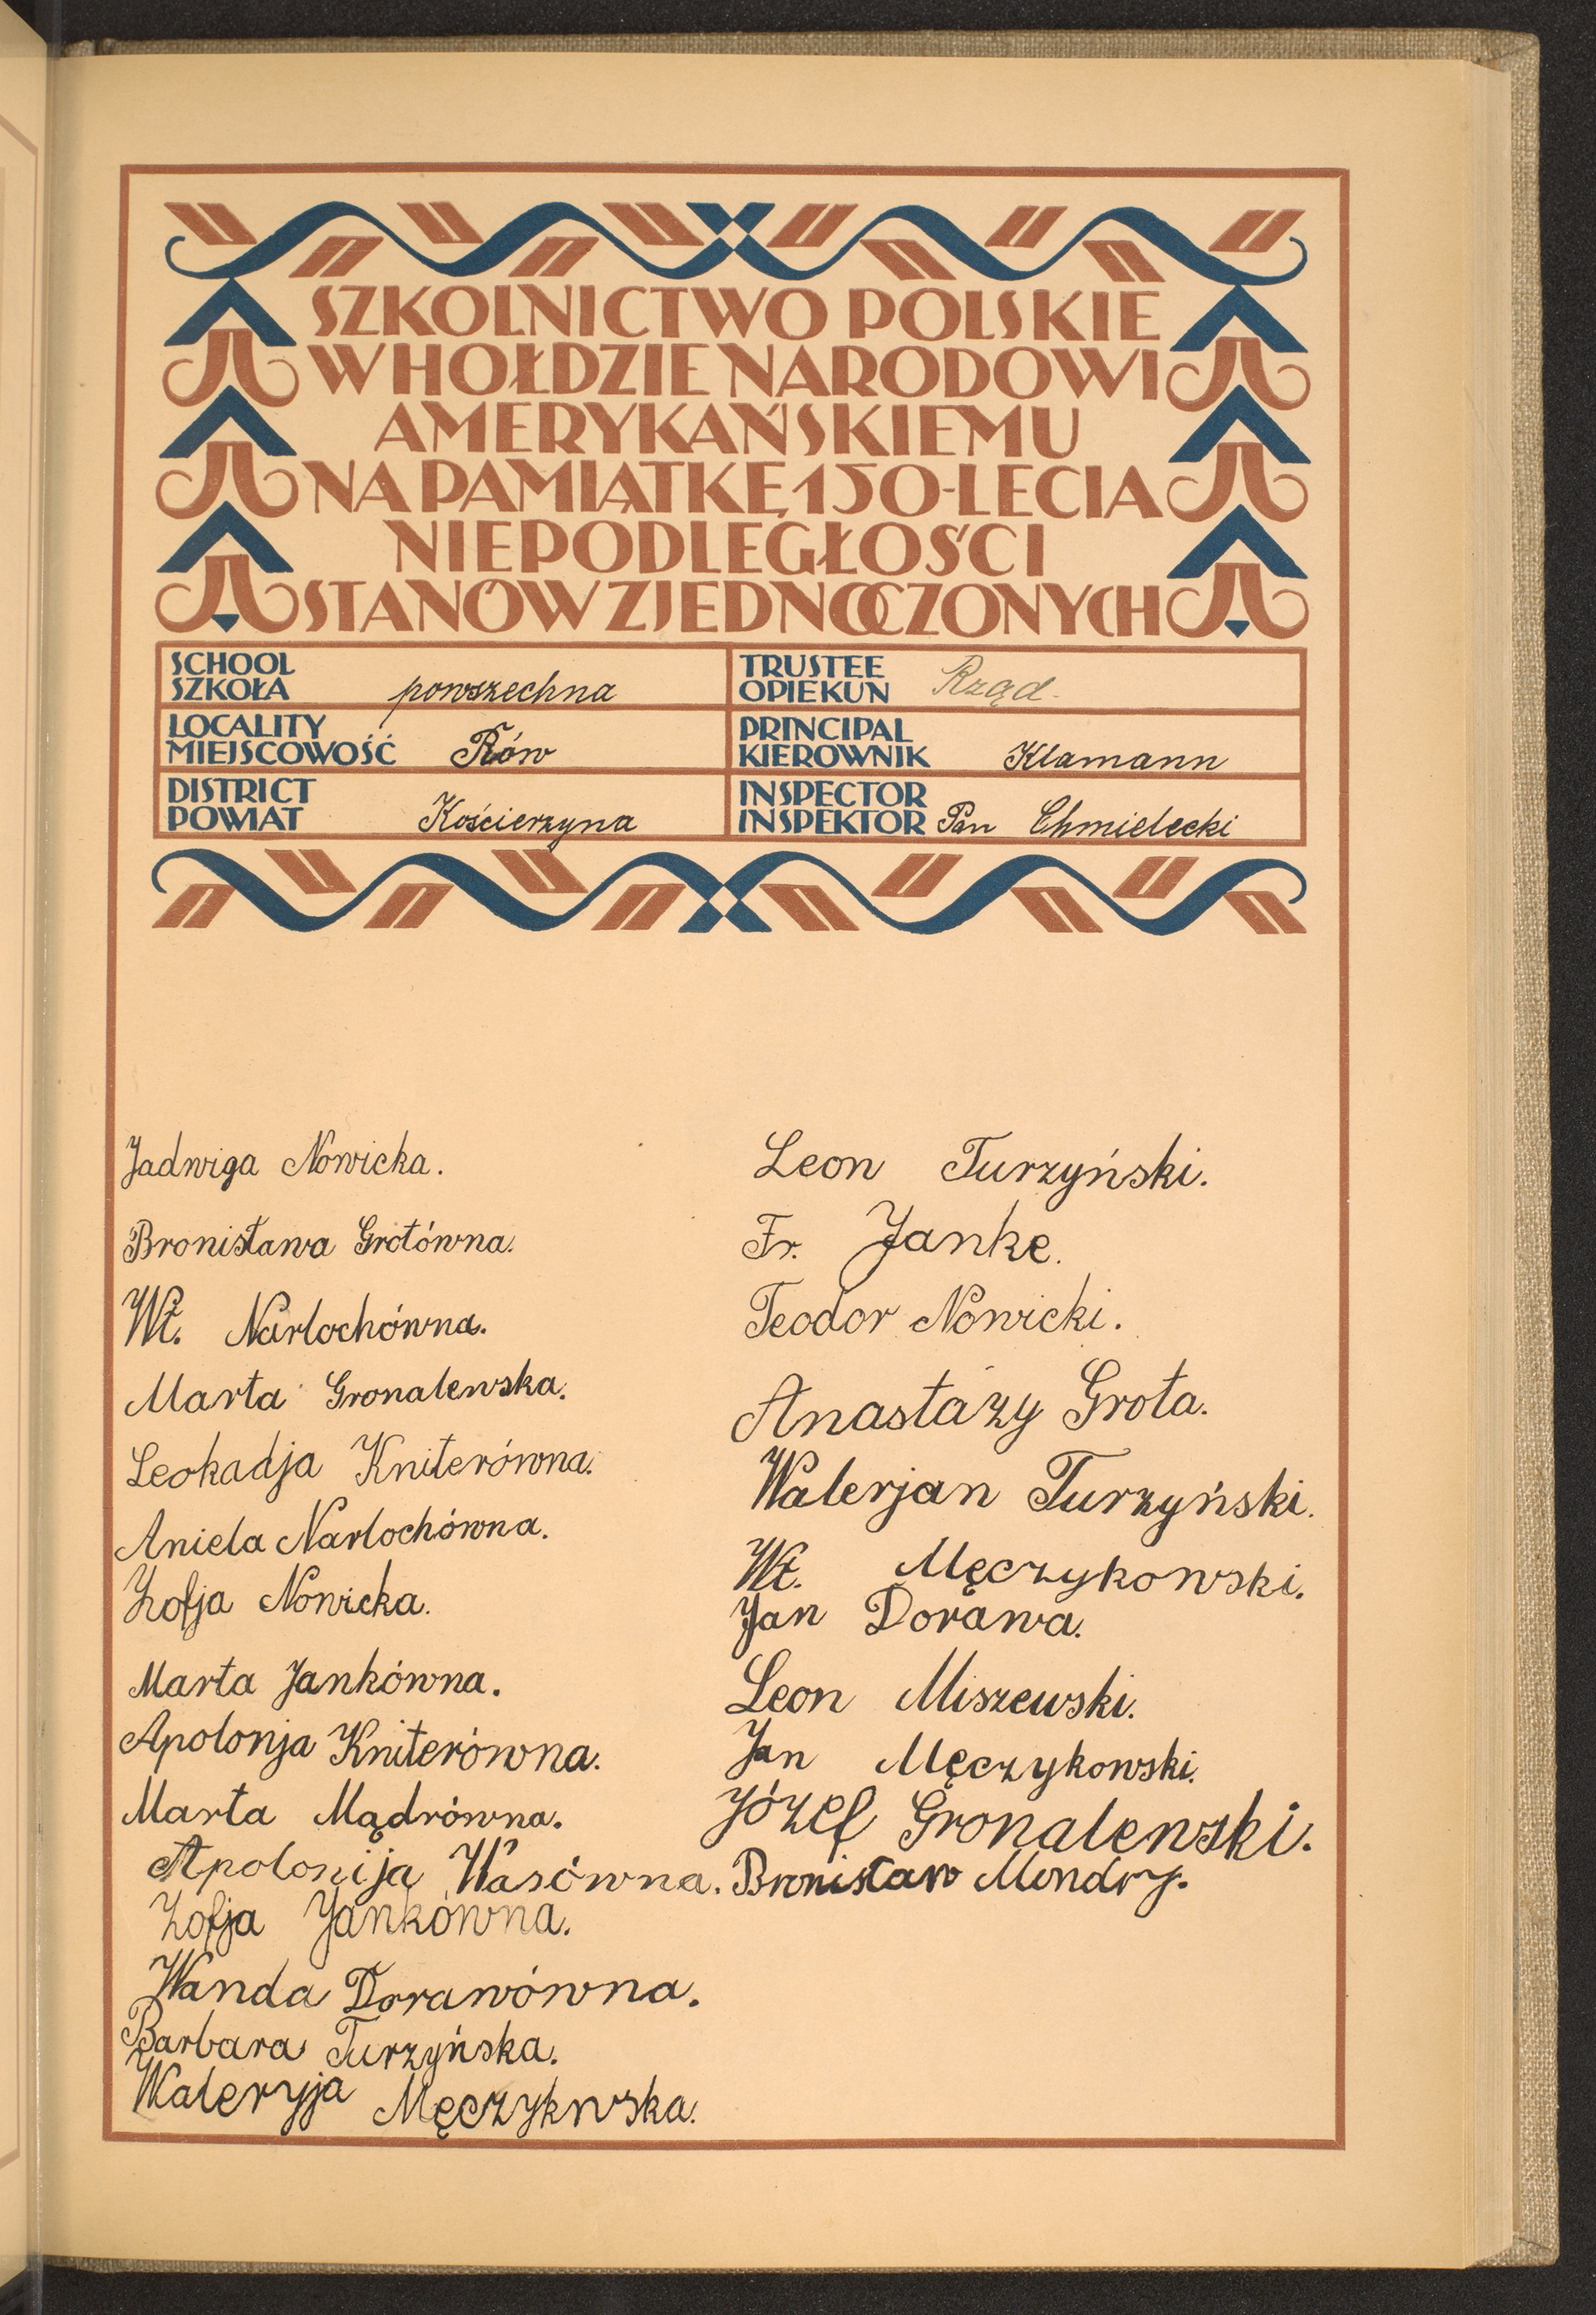 SZKOLNICTWO POLSKIE
W HOŁDZIE NARODOWI
AMERYKAŃSKIEMU
NA PAMIĄTKĘ 150-LECIA
NIEPODLEGŁOŚCI
STANÓW ZJEDNOCZONYCH
SCHOOL
SZKOŁA powszechna
TRUSTEE
OPIEKUN Rząd.
LOCALITY
MIEJSCOWOŚĆ Rów
PRINCIPAL
KIEROWNIK Klamann
DISTRICT
POWIAT Kościerzyna
INSPECTOR
INSPEKTOR Pan Chmielecki
Jadwiga Nowicka.
Bronisława Grotówna.
Wł. Narlochówna.
Marta Gronalewska.
Leokadja Kniterówna.
Aniela Narlochówna.
Zofja Nowicka.
Marta Jankówna.
Apolonja Kniterówna.
Marta Mądrówna.
Apolonija Wasówna.
Zofja Jankówna.
Wanda Dorawówna.
Barbara Turzyńska.
Waleryja Męczykwska.
Leon Turzyński.
Fr. Janke.
Teodor Nowicki.
Anastazy Grota.
Walerjan Turzyński.
Wł. Męczykowski.
Jan Dorawa.
Leon Miszewski.
Jan Męczykowski.
Józef Gronalewski.
Bronisław Mondry.